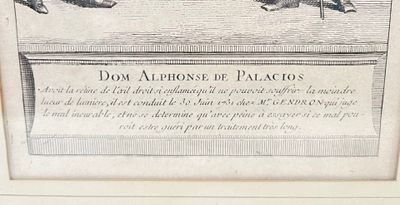 DOM ALPHONSE DE PALACIOS
Avoit la retine de l'œil droit si enflamée qu'il ne pouvoit souffrir la moindre
lueur de lumiere, il est conduit le 30 Juin 1731 chez Mr. GENDRON qui juge
le mal incurable, et ne se determine qu'avec peine a essayer si ce mal pou-
roit estre gueri par un traitement tres long.